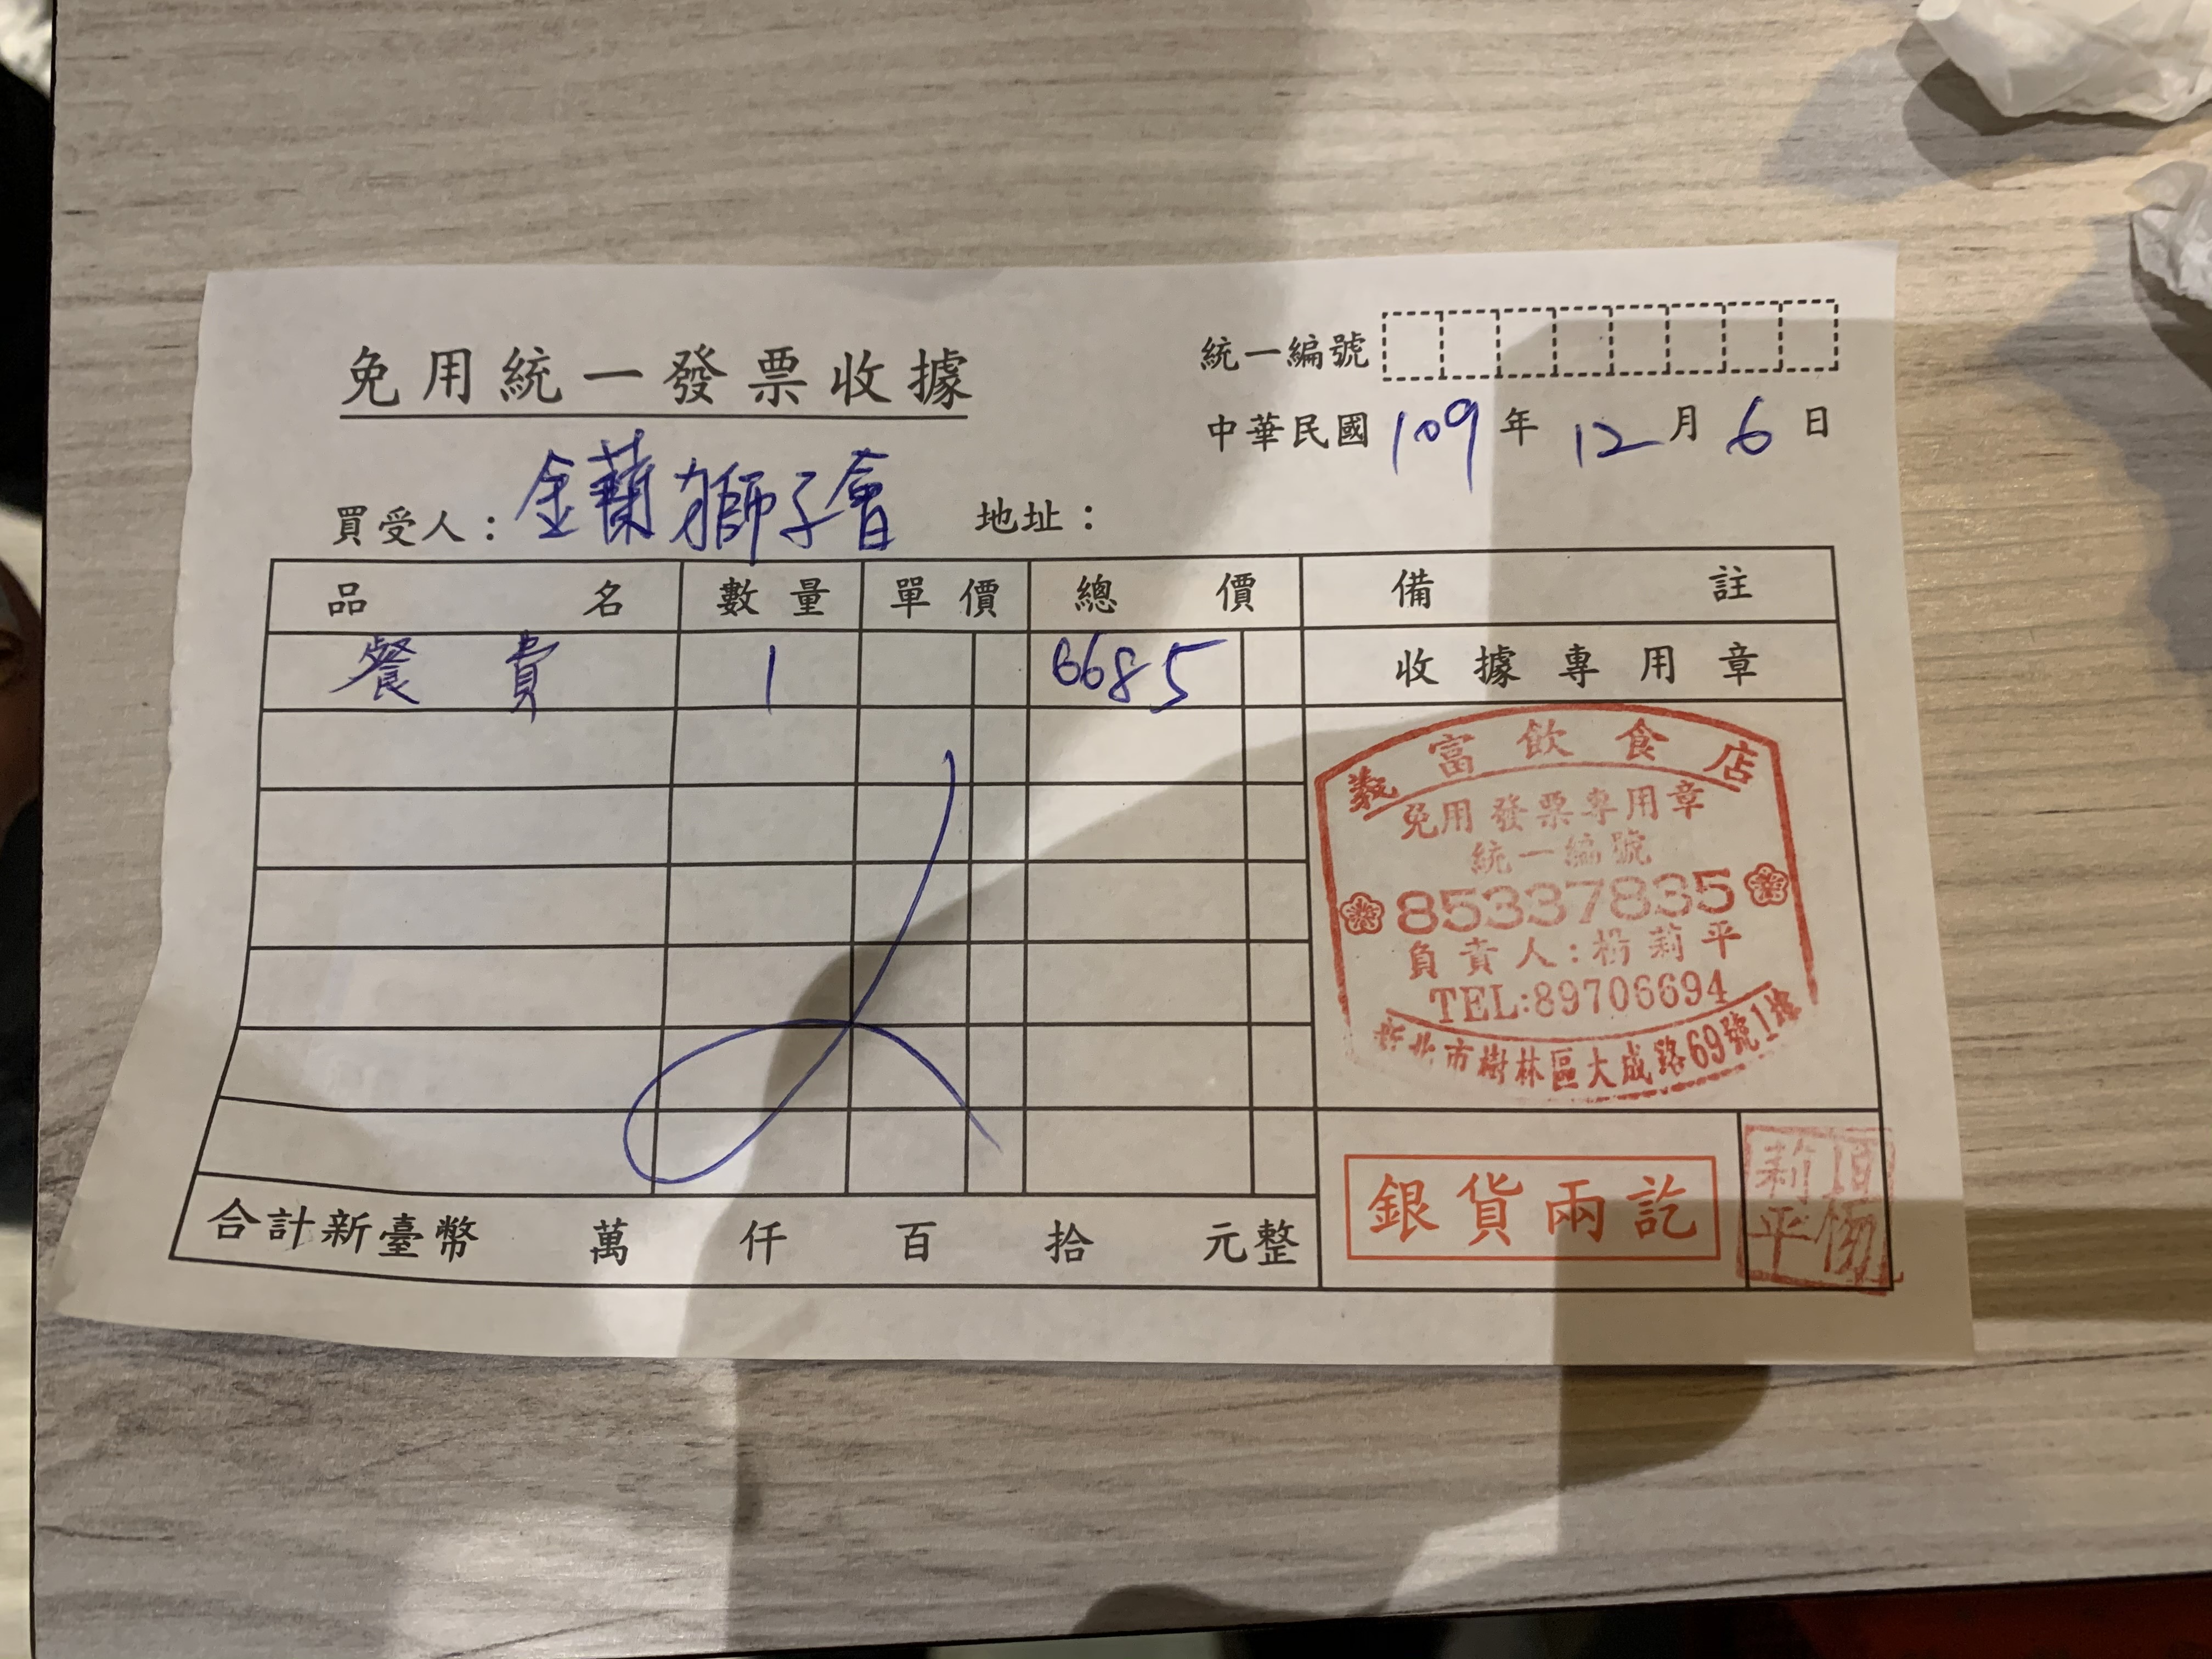 免用統一發票收據
統一編號
中華民國 109 年 12 月 6 日
買受人：金蘭獅子會 地址：
品名 數量 單價 總價 備註
餐費 1 6685 收據專用章
義富飲食店
免用發票專用章
統一編號
85337835
負責人：楊莉平
TEL:89706694
新北市樹林區大成路69號1樓
合計新臺幣 萬 仟 百 拾 元整
銀貨兩訖